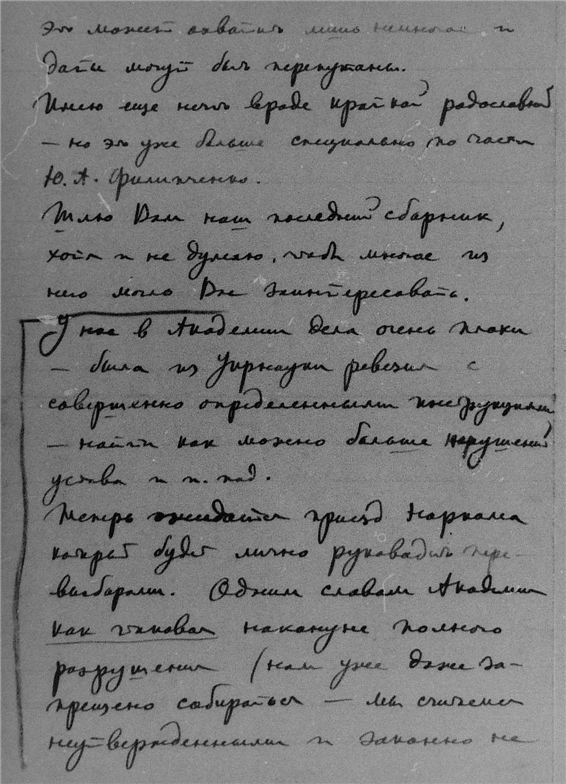 это может охватить лишь немногое и
даты могут быть перепутаны.
Имею еще нечто вроде краткой родословной
— но это уже больше специально по части
Ю. А. Филипченко.
Шлю Вам наш последний сборник,
хотя и не думаю, чтобы многое из
него могло Вас заинтересовать.
У нас в Академии дела очень плохи
— была из Укрнауки ревизия с
совершенно определенными инструкциями
— найти как можно больше нарушений
устава и т. под.
Теперь ожидается приезд Наркома
который будет лично руководить пере-
выборами. Одним словом Академия
как таковая накануне полного
разрушения (нам уже даже за-
прещено собираться — мы считаемся
неутвержденными и законно не